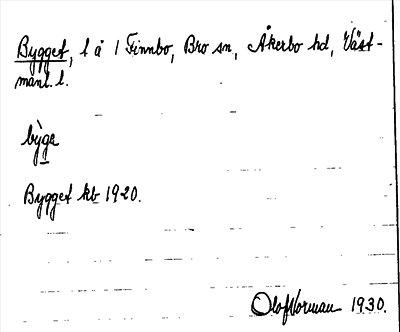 Bygget, l å 1 Finnbo, Bro sn, Åkerbo hd, Väst-
manl. l.
bỳgე
Bygget kb 1920.
Olof Norman 1930.